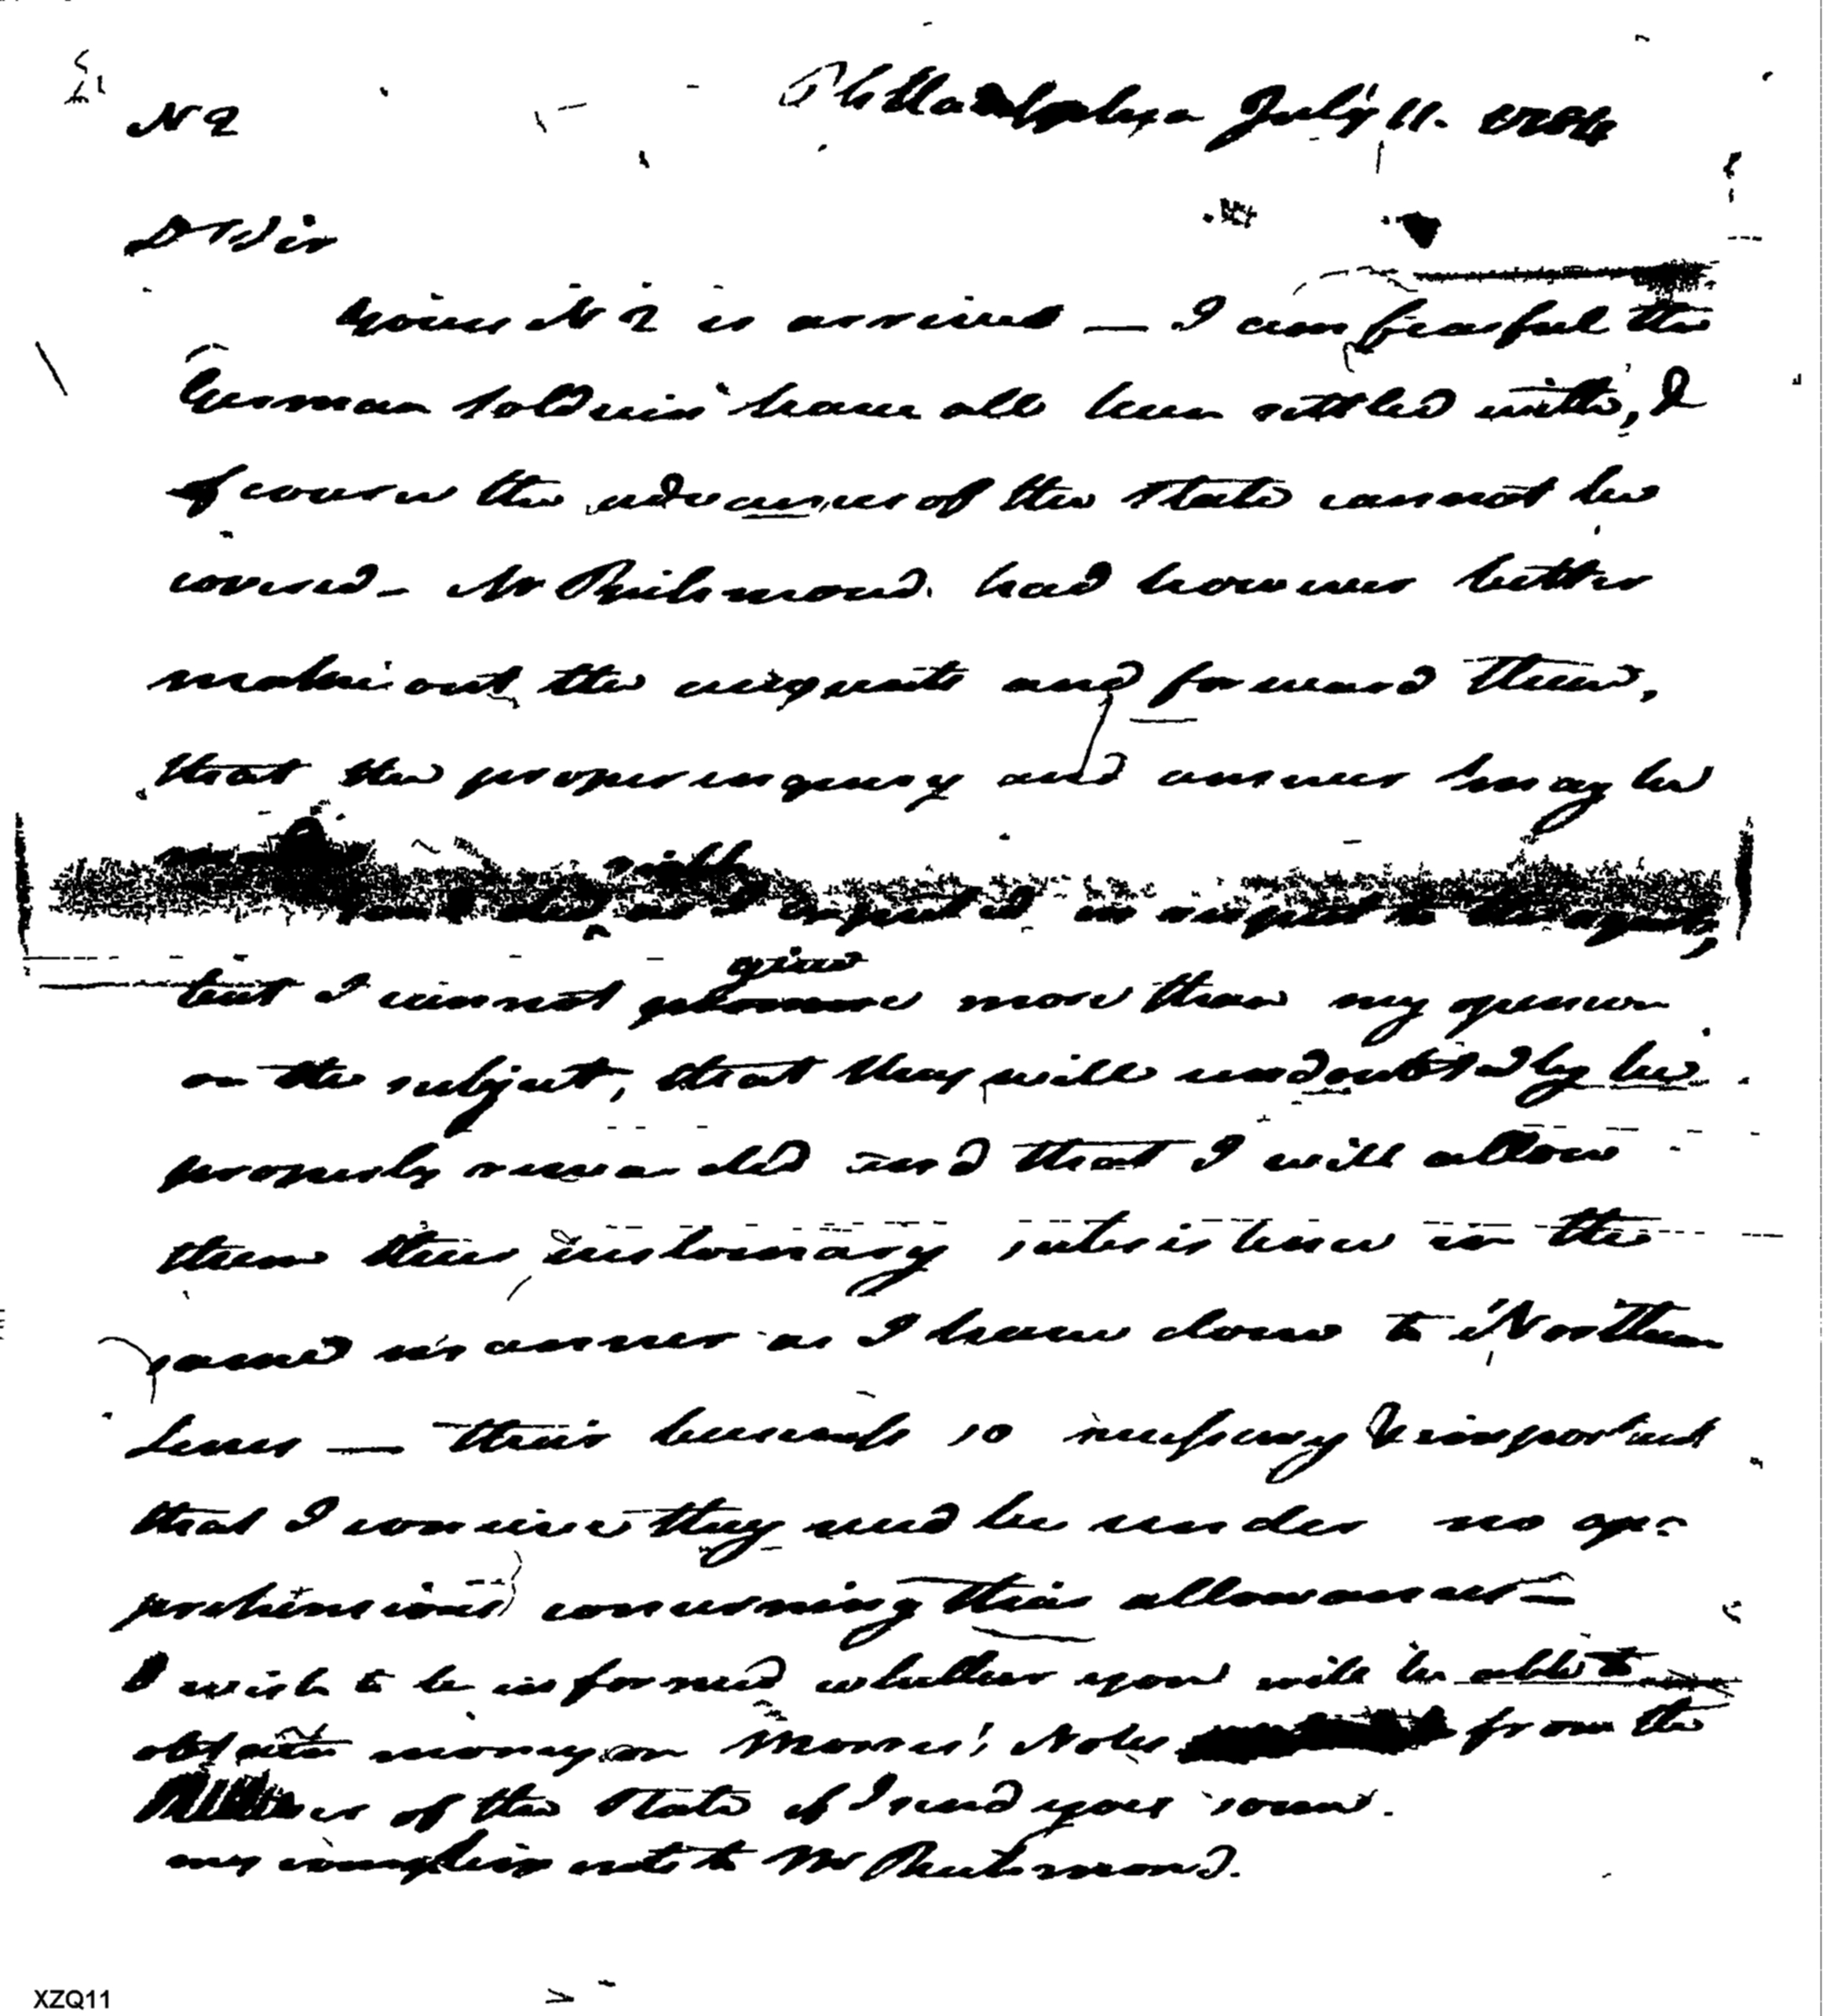 N 2
Philladelphia July 11. 1784
D Sir
Yours N 2 is arrived — I am fearful the
German soldiers have all been settled with, &
of course the advances of the State cannot be
covered – Mr Richmond. had however better
make out the accounts and forward them,
that the proper inquiry and answer may be
will
I expected in respect to the
give
but I cannot more than my opinion
on the subject, that they will undoubtedly be
properly rewarded and that I will allow
them their customary subsistence in the
same manner as I have done to Northern
Lines — their business so necessary & important
that I conceive they need be under no ap=
prehensions concerning their allowances —
I wish to be informed whether you will be able to
obtain money on Morris's Notes from the
of the State if I send you some.
my compliments to Mr Richmond.
XZQ11